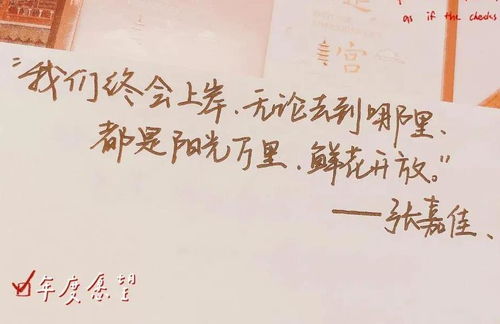 as if the checks
宫
“我们终会上岸、无论去到哪里、
都是阳光万里、鲜花开放。”
——张嘉佳、
年度愿望